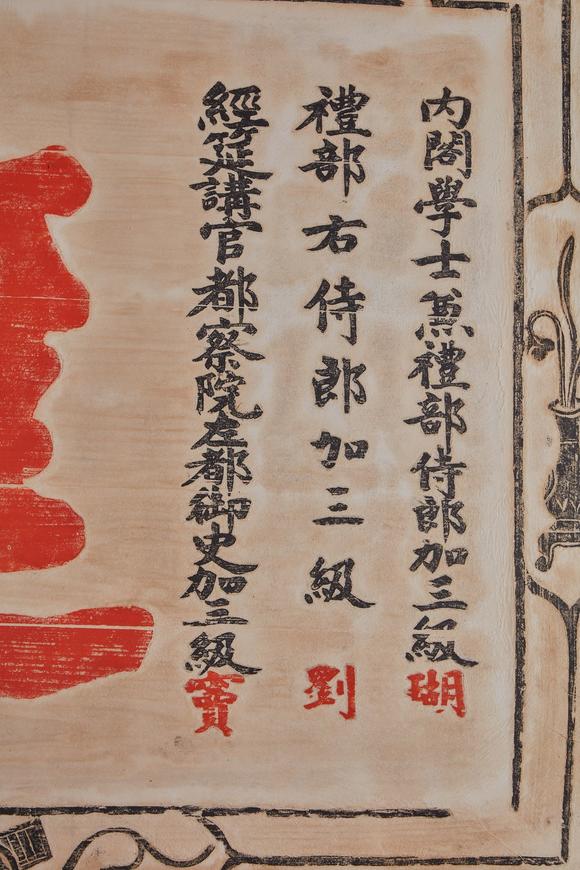 內閣學士兼禮部侍郎加三級瑚
禮部右侍郎加三級劉
經筵講官都察院左都御史加三級竇